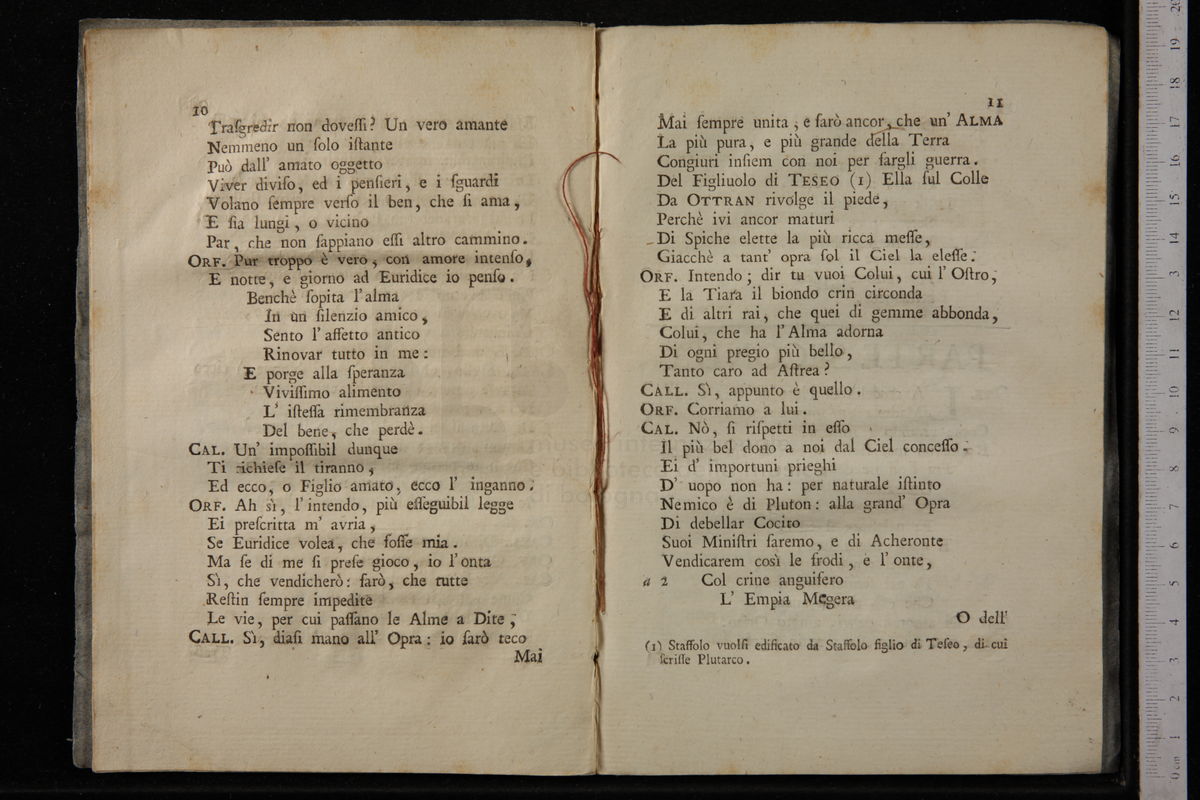 10
Traſgredir non doveſſi? Un vero amante
Nemmeno un ſolo iſtante
Può dall' amato oggetto
Viver diviſo, ed i penſieri, e i ſguardi
Volano ſempre verſo il ben, che ſi ama,
E ſia lungi, o vicino
Par, che non ſappiano eſſi altro cammino.
ORF. Pur troppo è vero, con amore intenſo,
E notte, e giorno ad Euridice io penſo.
Benchè ſopita l'alma
In un ſilenzio amico,
Sento l' affetto antico
Rinovar tutto in me:
E porge alla ſperanza
Viviſſimo alimento
L' iſteſſa rimembranza
Del bene, che perdè.
CAL. Un' impoſſibil dunque
Ti richieſe il tiranno,
Ed ecco, o Figlio amato, ecco l' inganno.
ORF. Ah sì, l'intendo, più eſſeguibil legge
Ei preſcritta m' avria,
Se Euridice volea, che foſſe mia.
Ma ſe di me ſi preſe gioco, io l'onta
Sì, che vendicherò: farò, che tutte
Reſtin ſempre impedite
Le vie, per cui paſſano le Alme a Dite;
CALL. Sì, diaſi mano all' Opra: io ſarò teco
Mai
11
Mai ſempre unita, e farò ancor, che un' ALMA
La più pura, e più grande della Terra
Congiuri inſiem con noi per fargli guerra.
Del Figliuolo di TESEO (1) Ella ſul Colle
Da OTTRAN rivolge il piede,
Perchè ivi ancor maturi
Di Spiche elette la più ricca meſſe,
Giacchè a tant' opra ſol il Ciel la eleſſe.
ORF. Intendo; dir tu vuoi Colui, cui l' Oſtro,
E la Tiara il biondo crin circonda
E di altri rai, che quei di gemme abbonda,
Colui, che ha l'Alma adorna
Di ogni pregio più bello,
Tanto caro ad Aſtrea?
CALL. Sì, appunto è quello.
ORF. Corriamo a lui.
CAL. Nò, ſi riſpetti in eſſo
Il più bel dono a noi dal Ciel conceſſo.
Ei d' importuni prieghi
D' uopo non ha: per naturale iſtinto
Nemico è di Pluton: alla grand' Opra
Di debellar Cocito
Suoi Miniſtri ſaremo, e di Acheronte
Vendicarem così le frodi, e l' onte,
a 2 Col crine anguifero
L' Empia Megera
O dell'
(1) Staffolo vuolſi edificato da Staffolo figlio di Teſeo, di cui
ſcriſſe Plutarco.